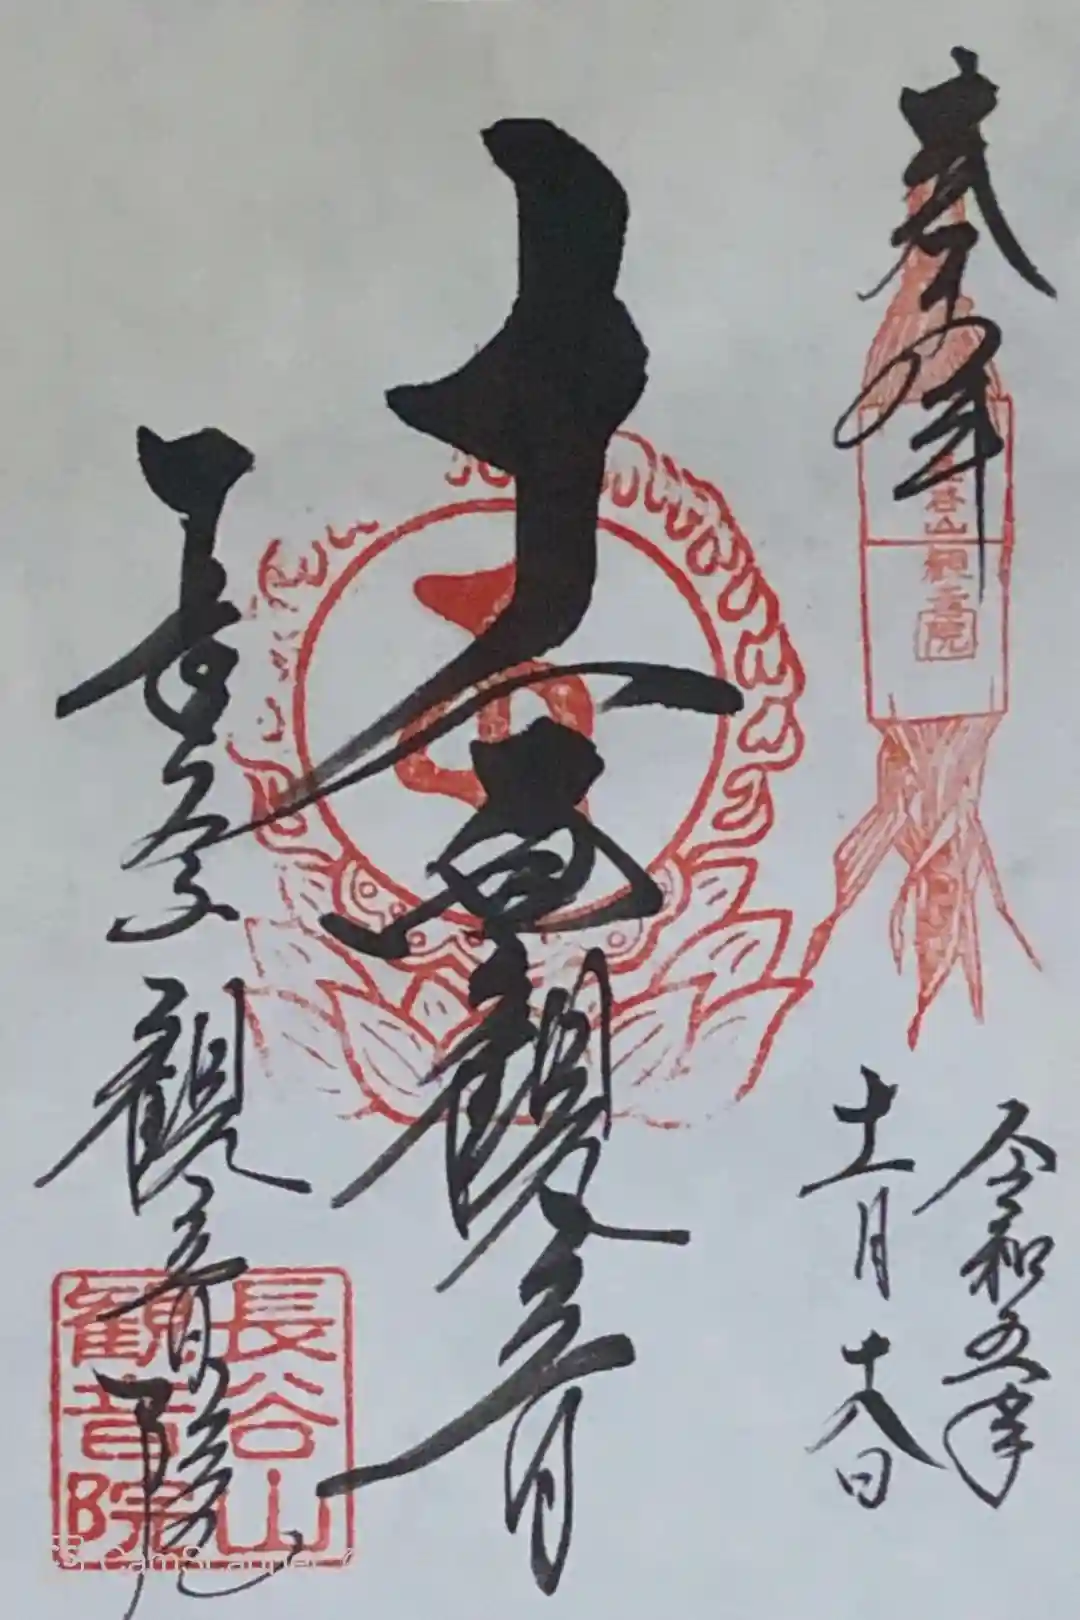 谷山観音院
令和五年
十一月十八日
十一面観音
観音院
長谷山
観音院
CS CamScanner